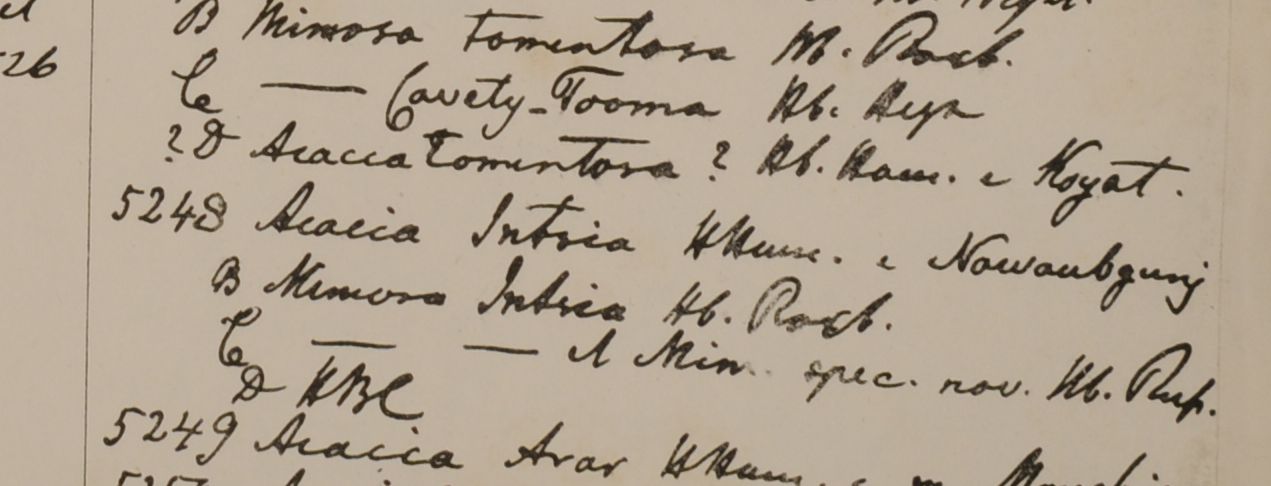 26
B Mimosa tomentosa Hb. Roxb.
C — Cavety-Tooma Hb. Heyn
? D Acacia tomentosa ? Hb. Ham. e Koyat.
5248 Acacia Intsia HHam. e Nowaubgunj
B Mimosa Intsia Hb. Roxb.
C — — et Mim. spec. nov. Hb. Rup.
D HBC
5249 Acacia Arar HHam.